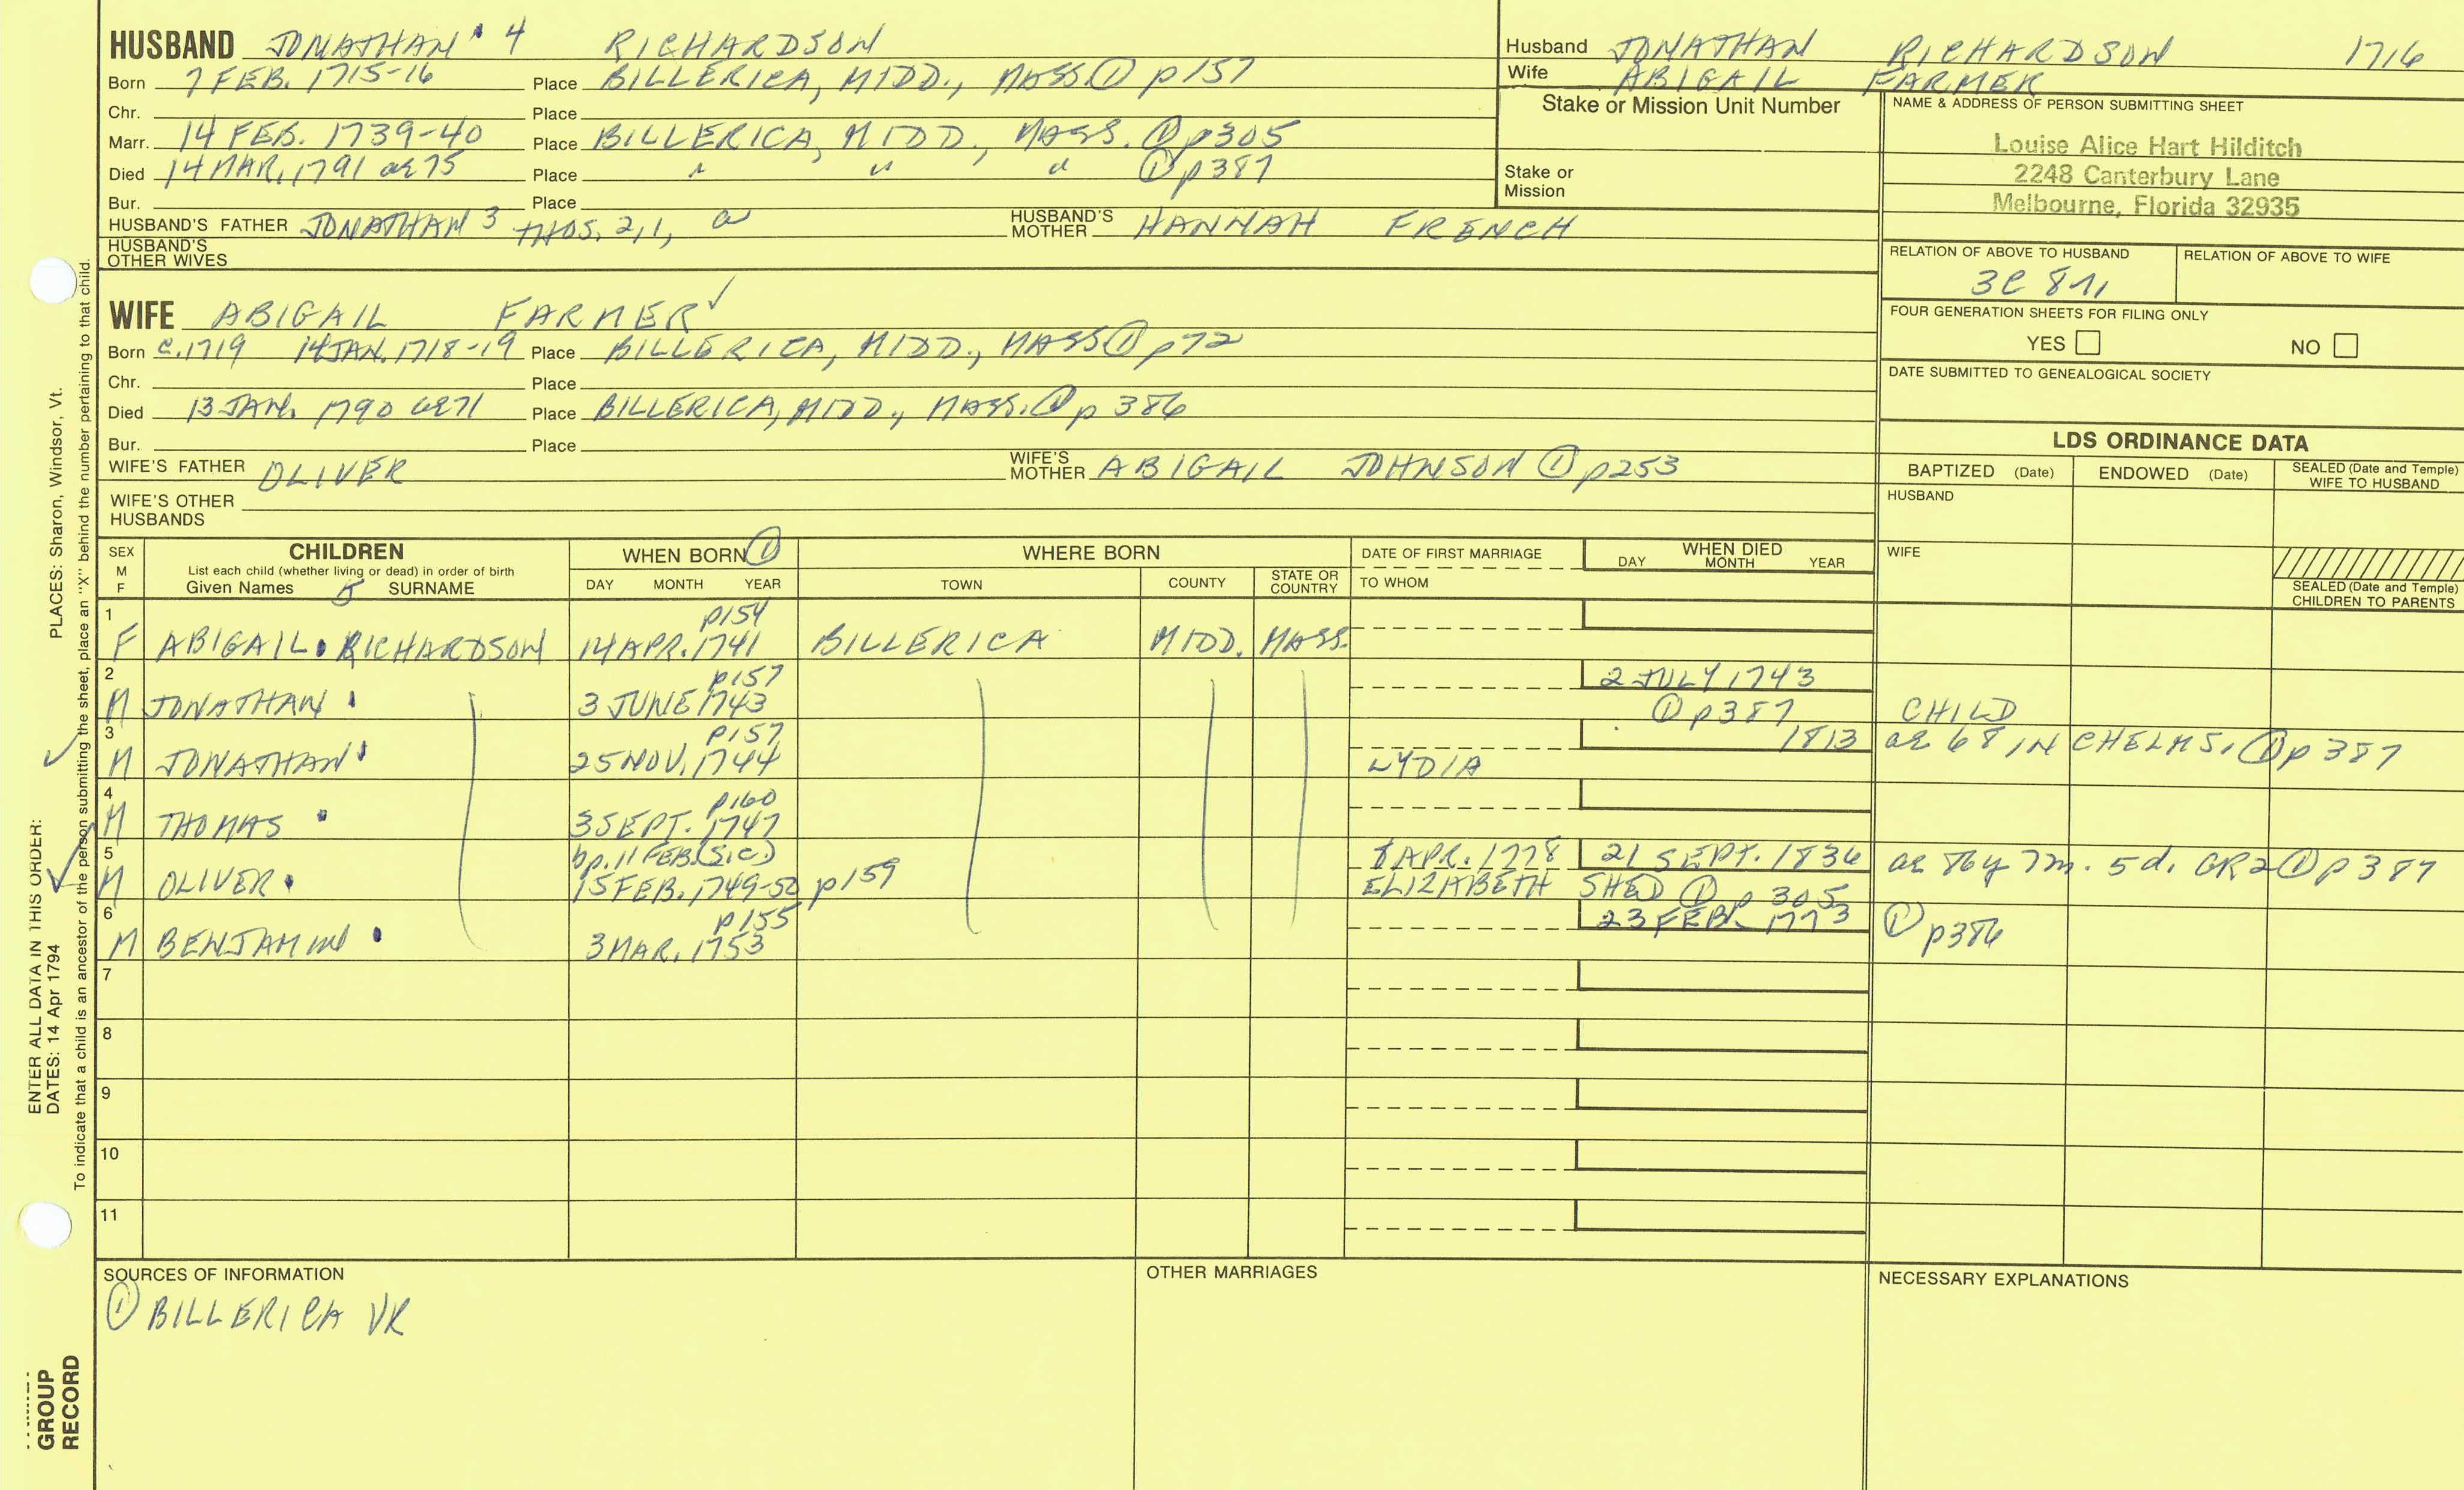 HUSBAND JONATHAN 4 RICHARDSON
Born 7 FEB. 1715-16 Place BILLERICA, MIDD., MASS. ① p157
Chr. Place
Marr. 14 FEB. 1739-40 Place BILLERICA, MIDD., MASS. ① p305
Died 14 MAR. 1791 ae 75 Place " " " ① p387
Bur. Place
HUSBAND'S FATHER JONATHAN 3 THOS. 2, 1, HUSBAND'S MOTHER HANNAH FRENCH
HUSBAND'S OTHER WIVES
Husband JONATHAN RICHARDSON 1716
Wife ABIGAIL FARMER
Stake or Mission Unit Number
Stake or Mission
NAME & ADDRESS OF PERSON SUBMITTING SHEET
Louise Alice Hart Hilditch
2248 Canterbury Lane
Melbourne, Florida 32935
RELATION OF ABOVE TO HUSBAND RELATION OF ABOVE TO WIFE
3C 8
FOUR GENERATION SHEETS FOR FILING ONLY
YES NO
DATE SUBMITTED TO GENEALOGICAL SOCIETY
WIFE ABIGAIL FARMER ✓
Born c. 1719 14 JAN. 1718-19 Place BILLERICA, MIDD., MASS ① p72
Chr. Place
Died 13 JAN. 1790 ae 71 Place BILLERICA, MIDD., MASS. ① p 386
Bur. Place
WIFE'S FATHER OLIVER WIFE'S MOTHER ABIGAIL JOHNSON ① p253
WIFE'S OTHER HUSBANDS
LDS ORDINANCE DATA
BAPTIZED (Date) ENDOWED (Date) SEALED (Date and Temple) WIFE TO HUSBAND
HUSBAND
WIFE
SEALED (Date and Temple) CHILDREN TO PARENTS
SEX M F CHILDREN WHEN BORN ① WHERE BORN DATE OF FIRST MARRIAGE WHEN DIED
List each child (whether living or dead) in order of birth
Given Names 5 SURNAME DAY MONTH YEAR TOWN COUNTY STATE OR COUNTRY TO WHOM DAY MONTH YEAR
1 p154
F ABIGAIL RICHARDSON 14 APR. 1741 BILLERICA MIDD. MASS.
2 p157 2 JULY 1743
M JONATHAN 3 JUNE 1743 ① p387 CHILD
3 p157 1813 ae 68 IN CHELMS. ① p 387
M JONATHAN 25 NOV. 1744 LYDIA
4 p160
M THOMAS 3 SEPT. 1747
5 bp. 11 FEB. (SIC) 8 APR. 1778 21 SEPT. 1836 ae 86y 7m. 5d. GR2 ① p 387
M OLIVER 15 FEB. 1749-50 p159 ELIZABETH SHED ① p 305
6 p155 23 FEB. 1773 ① p386
M BENJAMIN 3 MAR. 1753
7
8
9
10
11
SOURCES OF INFORMATION OTHER MARRIAGES NECESSARY EXPLANATIONS
① BILLERICA VR
ENTER ALL DATA IN THIS ORDER:
DATES: 14 Apr 1794 PLACES: Sharon, Windsor, Vt.
To indicate that a child is an ancestor of the person submitting the sheet, place an "X" behind the number pertaining to that child.
GROUP
RECORD